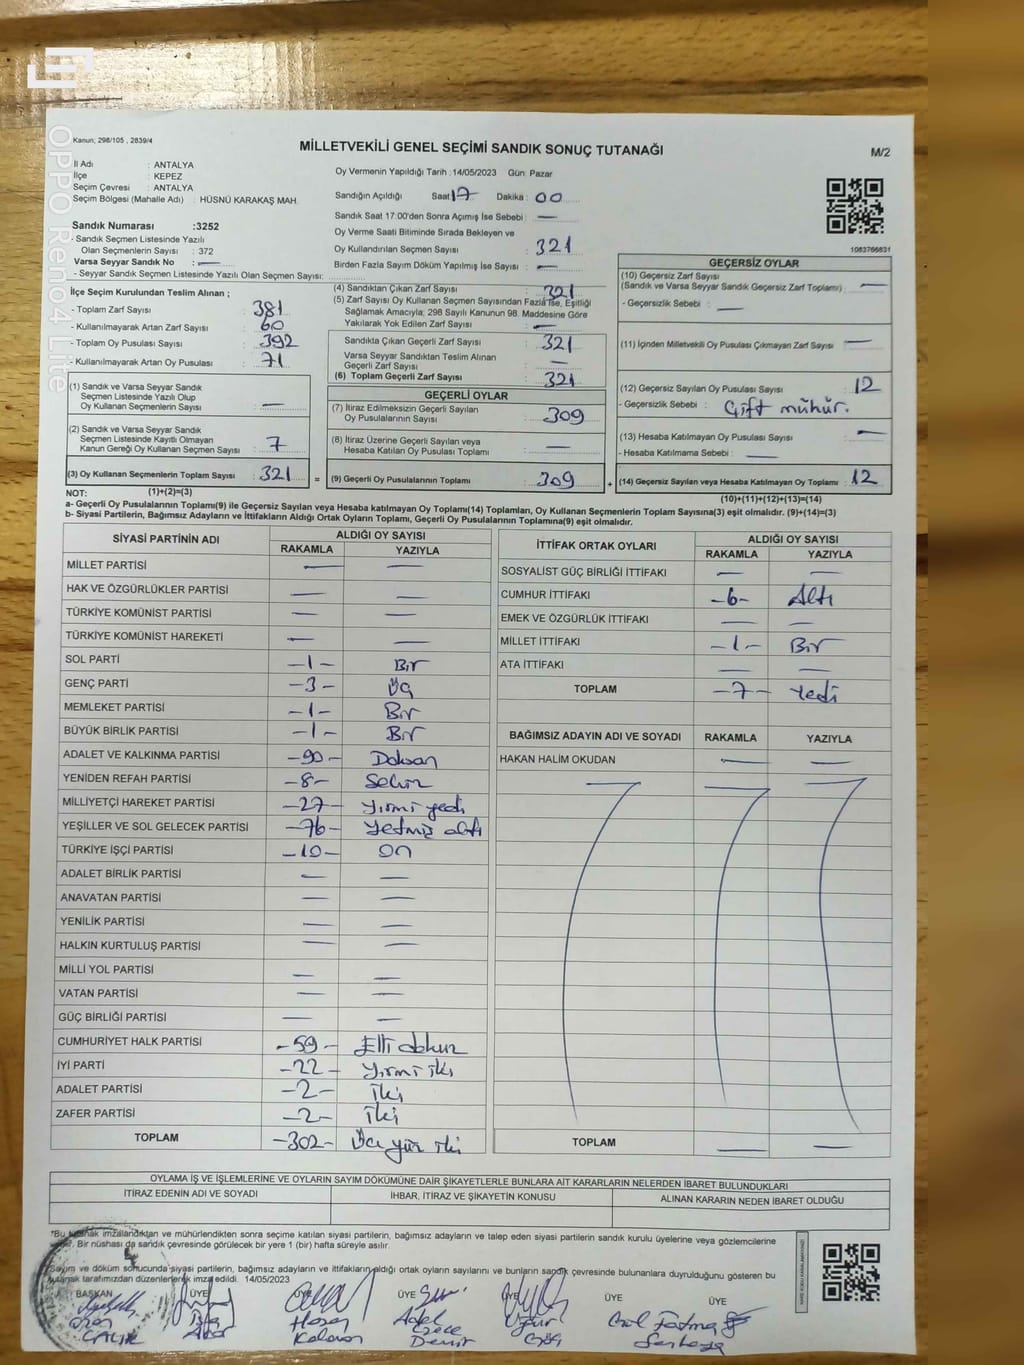 OPPO Reno4 Lite
Kanun; 298/105 , 2839/4
MİLLETVEKİLİ GENEL SEÇİMİ SANDIK SONUÇ TUTANAĞI
M/2
İl Adı : ANTALYA
İlçe : KEPEZ
Seçim Çevresi : ANTALYA
Seçim Bölgesi (Mahalle Adı) : HÜSNÜ KARAKAŞ MAH.
Sandık Numarası :3252
- Sandık Seçmen Listesinde Yazılı
Olan Seçmenlerin Sayısı : 372
Varsa Seyyar Sandık No : —
- Seyyar Sandık Seçmen Listesinde Yazılı Olan Seçmen Sayısı:
Oy Vermenin Yapıldığı Tarih : 14/05/2023 Gün: Pazar
Sandığın Açıldığı Saat 17 Dakika : 00
Sandık Saat 17:00'den Sonra Açımış İse Sebebi : —
Oy Verme Saati Bitiminde Sırada Bekleyen ve
Oy Kullandırılan Seçmen Sayısı : 321
Birden Fazla Sayım Döküm Yapılmış İse Sayısı : —
1063766631
İlçe Seçim Kurulundan Teslim Alınan ;
- Toplam Zarf Sayısı : 381
- Kullanılmayarak Artan Zarf Sayısı : 60
- Toplam Oy Pusulası Sayısı : 392
- Kullanılmayarak Artan Oy Pusulası : 71
(1) Sandık ve Varsa Seyyar Sandık
Seçmen Listesinde Yazılı Olup
Oy Kullanan Seçmenlerin Sayısı : —
(2) Sandık ve Varsa Seyyar Sandık
Seçmen Listesinde Kayıtlı Olmayan
Kanun Gereği Oy Kullanan Seçmen Sayısı : 7
(3) Oy Kullanan Seçmenlerin Toplam Sayısı : 321
(1)+(2)=(3)
(4) Sandıktan Çıkan Zarf Sayısı : 321
(5) Zarf Sayısı Oy Kullanan Seçmen Sayısından Fazla İse, Eşitliği
Sağlamak Amacıyla; 298 Sayılı Kanunun 98. Maddesine Göre
Yakılarak Yok Edilen Zarf Sayısı : —
Sandıkta Çıkan Geçerli Zarf Sayısı : 321
Varsa Seyyar Sandıktan Teslim Alınan
Geçerli Zarf Sayısı : —
(6) Toplam Geçerli Zarf Sayısı : 321
GEÇERLİ OYLAR
(7) İtiraz Edilmeksizin Geçerli Sayılan
Oy Pusulalarının Sayısı : 309
(8) İtiraz Üzerine Geçerli Sayılan veya
Hesaba Katılan Oy Pusulası Toplamı : —
= (9) Geçerli Oy Pusulalarının Toplamı : 309 +
GEÇERSİZ OYLAR
(10) Geçersiz Zarf Sayısı
(Sandık ve Varsa Seyyar Sandık Geçersiz Zarf Toplamı) : —
- Geçersizlik Sebebi : —
(11) İçinden Milletvekili Oy Pusulası Çıkmayan Zarf Sayısı : —
(12) Geçersiz Sayılan Oy Pusulası Sayısı : 12
- Geçersizlik Sebebi : Çift mühür.
(13) Hesaba Katılmayan Oy Pusulası Sayısı : —
- Hesaba Katılmama Sebebi : —
(14) Geçersiz Sayılan veya Hesaba Katılmayan Oy Toplamı : 12
(10)+(11)+(12)+(13)=(14)
NOT:
a- Geçerli Oy Pusulalarının Toplamı(9) ile Geçersiz Sayılan veya Hesaba katılmayan Oy Toplamı(14) Toplamları, Oy Kullanan Seçmenlerin Toplam Sayısına(3) eşit olmalıdır. (9)+(14)=(3)
b- Siyasi Partilerin, Bağımsız Adayların ve İttifakların Aldığı Ortak Oyların Toplamı, Geçerli Oy Pusulalarının Toplamına(9) eşit olmalıdır.
SİYASİ PARTİNİN ADI ALDIĞI OY SAYISI
RAKAMLA YAZIYLA
MİLLET PARTİSİ — —
HAK VE ÖZGÜRLÜKLER PARTİSİ — —
TÜRKİYE KOMÜNİST PARTİSİ — —
TÜRKİYE KOMÜNİST HAREKETİ — —
SOL PARTİ -1- Bir
GENÇ PARTİ -3- Üç
MEMLEKET PARTİSİ -1- Bir
BÜYÜK BİRLİK PARTİSİ -1- Bir
ADALET VE KALKINMA PARTİSİ -90- Doksan
YENİDEN REFAH PARTİSİ -8- Sekiz
MİLLİYETÇİ HAREKET PARTİSİ -27- Yirmi yedi
YEŞİLLER VE SOL GELECEK PARTİSİ -76- Yetmiş altı
TÜRKİYE İŞÇİ PARTİSİ -10- On
ADALET BİRLİK PARTİSİ — —
ANAVATAN PARTİSİ — —
YENİLİK PARTİSİ — —
HALKIN KURTULUŞ PARTİSİ — —
MİLLİ YOL PARTİSİ — —
VATAN PARTİSİ — —
GÜÇ BİRLİĞİ PARTİSİ — —
CUMHURİYET HALK PARTİSİ -59- Elli dokuz
İYİ PARTİ -22- Yirmi iki
ADALET PARTİSİ -2- İki
ZAFER PARTİSİ -2- İki
TOPLAM -302- Üç yüz iki
İTTİFAK ORTAK OYLARI ALDIĞI OY SAYISI
RAKAMLA YAZIYLA
SOSYALİST GÜÇ BİRLİĞİ İTTİFAKI — —
CUMHUR İTTİFAKI -6- Altı
EMEK VE ÖZGÜRLÜK İTTİFAKI — —
MİLLET İTTİFAKI -1- Bir
ATA İTTİFAKI — —
TOPLAM -7- Yedi
BAĞIMSIZ ADAYIN ADI VE SOYADI RAKAMLA YAZIYLA
HAKAN HALİM OKUDAN — —
TOPLAM — —
OYLAMA İŞ VE İŞLEMLERİNE VE OYLARIN SAYIM DÖKÜMÜNE DAİR ŞİKAYETLERLE BUNLARA AİT KARARLARIN NELERDEN İBARET BULUNDUKLARI
İTİRAZ EDENİN ADI VE SOYADI İHBAR, İTİRAZ VE ŞİKAYETİN KONUSU ALINAN KARARIN NEDEN İBARET OLDUĞU
*Bu tutanak imzalandıktan ve mühürlendikten sonra seçime katılan siyasi partilerin, bağımsız adayların ve talep eden siyasi partilerin sandık kurulu üyelerine veya gözlemcilerine
Bir nüshası da sandık çevresinde görülecek bir yere 1 (bir) hafta süreyle asılır.
Sayım ve döküm sonucunda siyasi partilerin, bağımsız adayların ve ittifakların aldığı ortak oyların sayılarını ve bunların sandık çevresinde bulunanlara duyrulduğunu gösteren bu
tutanak tarafımızdan düzenlenerek imza edildi. 14/05/2023
BAŞKAN ÜYE ÜYE ÜYE ÜYE ÜYE ÜYE
Hasan Adel Uğur Fatma
ÇALIK Demir